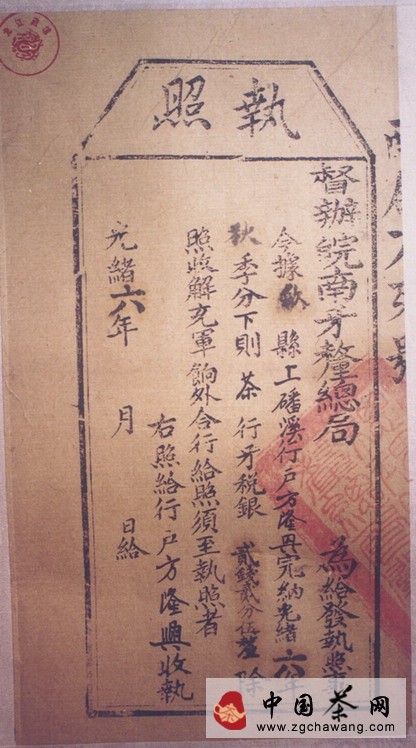 執照
督辦皖南牙釐總局 為給發執照事
今據歙縣上磻溪行戶方隆興完納光緒六年
秋季分下則茶行牙稅銀貳錢貳分伍釐除
照收解充軍餉外合行給照須至執照者
右照給行戶方隆興收執
光緒六年 月 日給
中国茶网
www.zgchawang.com